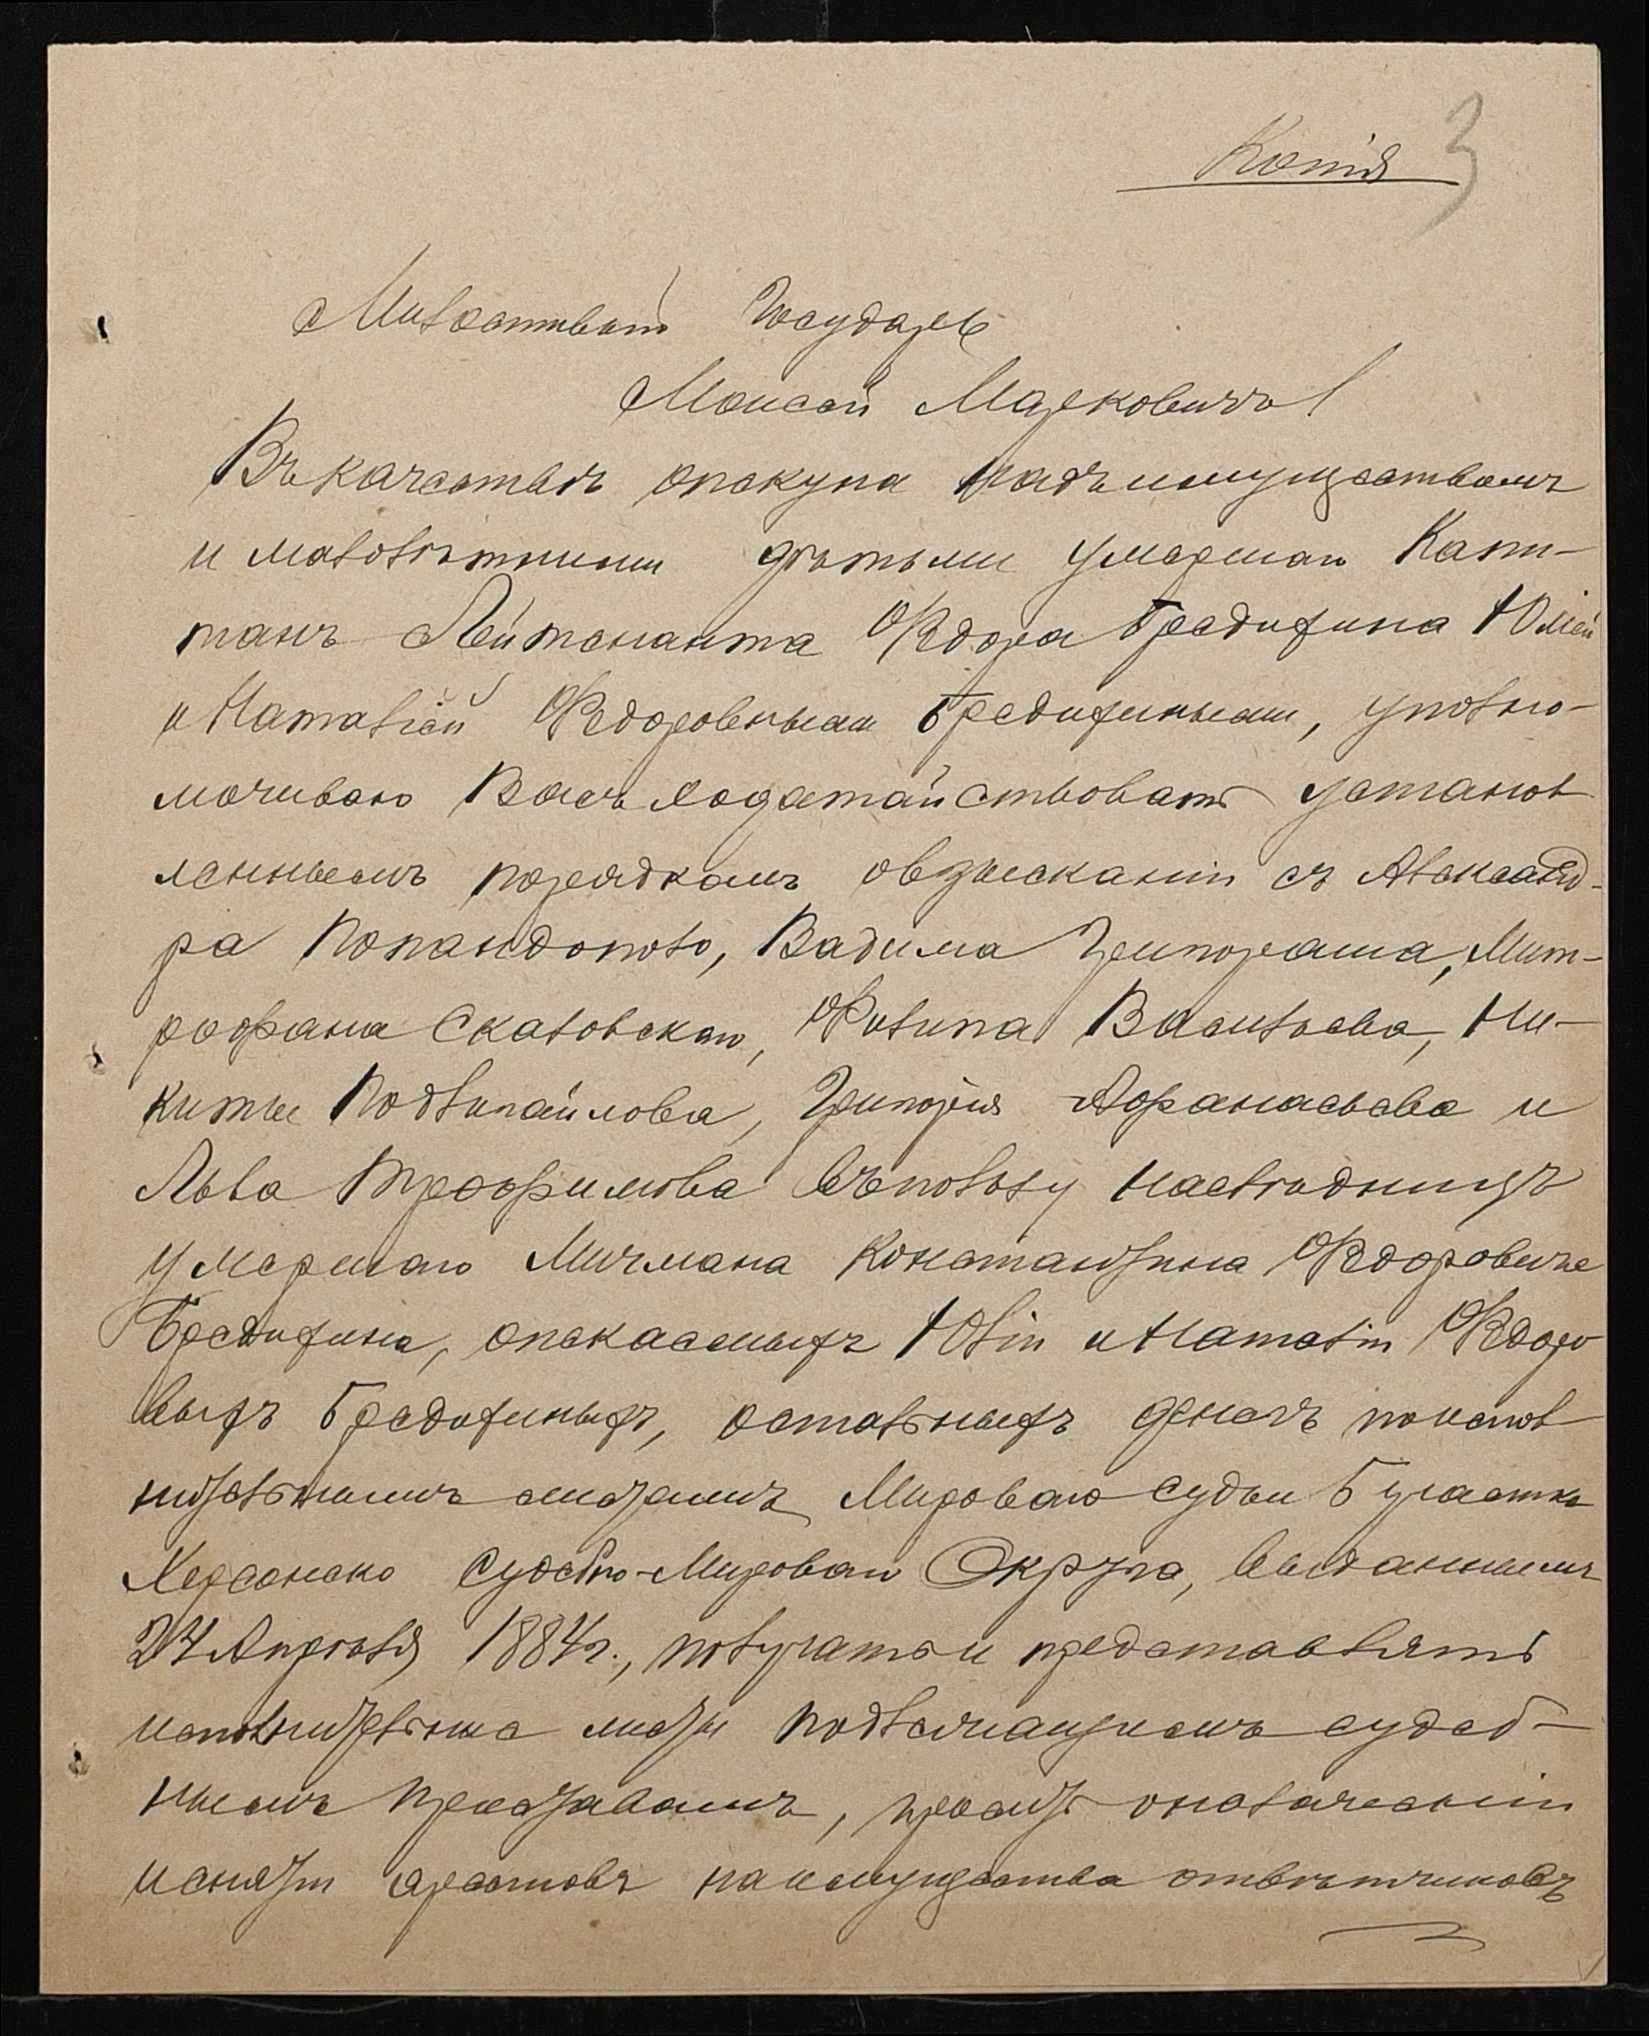 Копія 3
Милостивый Государь
Моисей Марковичъ!
Въ качествѣ опекуна надъ имуществомъ
и малолѣтними дѣтьми умершаго Капи-
танъ Лейтенанта Ѳедора Бредихина Юліей
и Наталіей Ѳедоровными Бредихиными, уполно-
мочиваю Васъ ходатайствовать установ
леннымъ порядкомъ о взысканіи съ Александ-
ра Попандополо, Вадима Григораша, Мит-
рофана Скаловскаго, Филипа Васильева, Ни-
киты Подвипайлова, Григорія Афанасьева и
Льва Трофимова въ пользу наслѣдницъ
умершаго Мичмана Константина Ѳедоровича
Бредихина, опекаемыхъ Юліи и Наталіи Ѳедоро
выхъ Бредихиныхъ, остальныхъ денегъ по испол
нительнымъ листамъ Мироваго судьи 5 участка
Херсонско Судебно-Мироваго Округа, выданнымъ
24 Апрѣля 1884 г., получать и представлять
исполнительные листы подлежащимъ судеб-
нымъ приставамъ, просить о наложеніи
и снятіи арестовъ на имущества отвѣтчиковъ